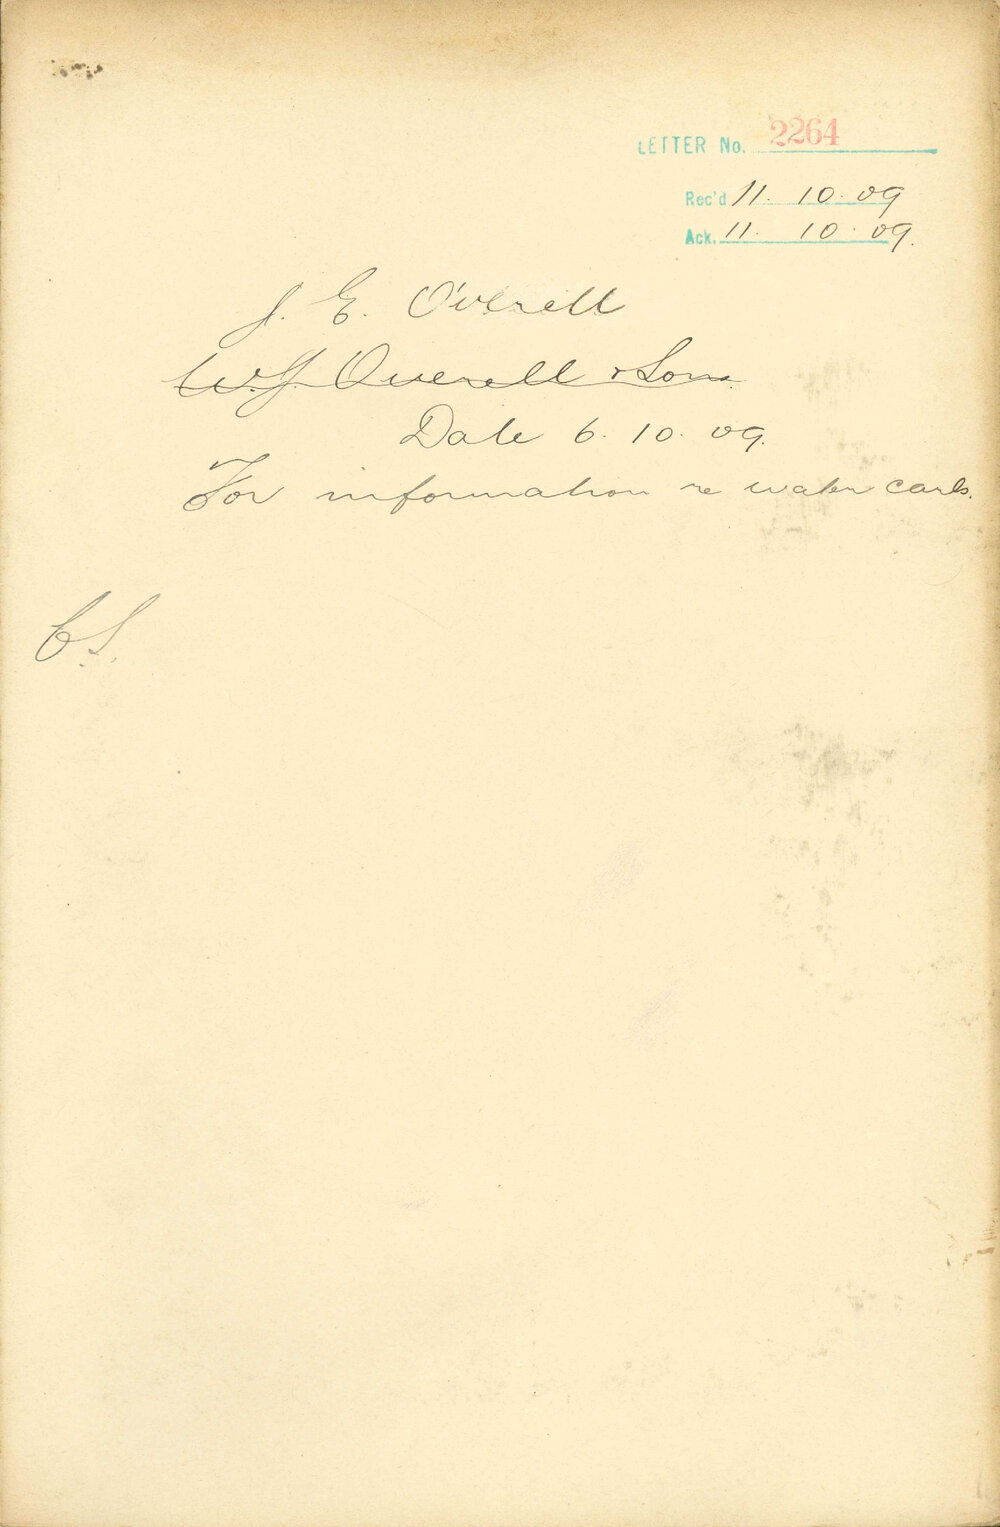 LETTER No. 2264
Rec'd 11. 10. 09
Ack. 11. 10. 09.
J. E. Overell
W.J. Overell & Sons.
Date 6. 10. 09.
For information re water carts.